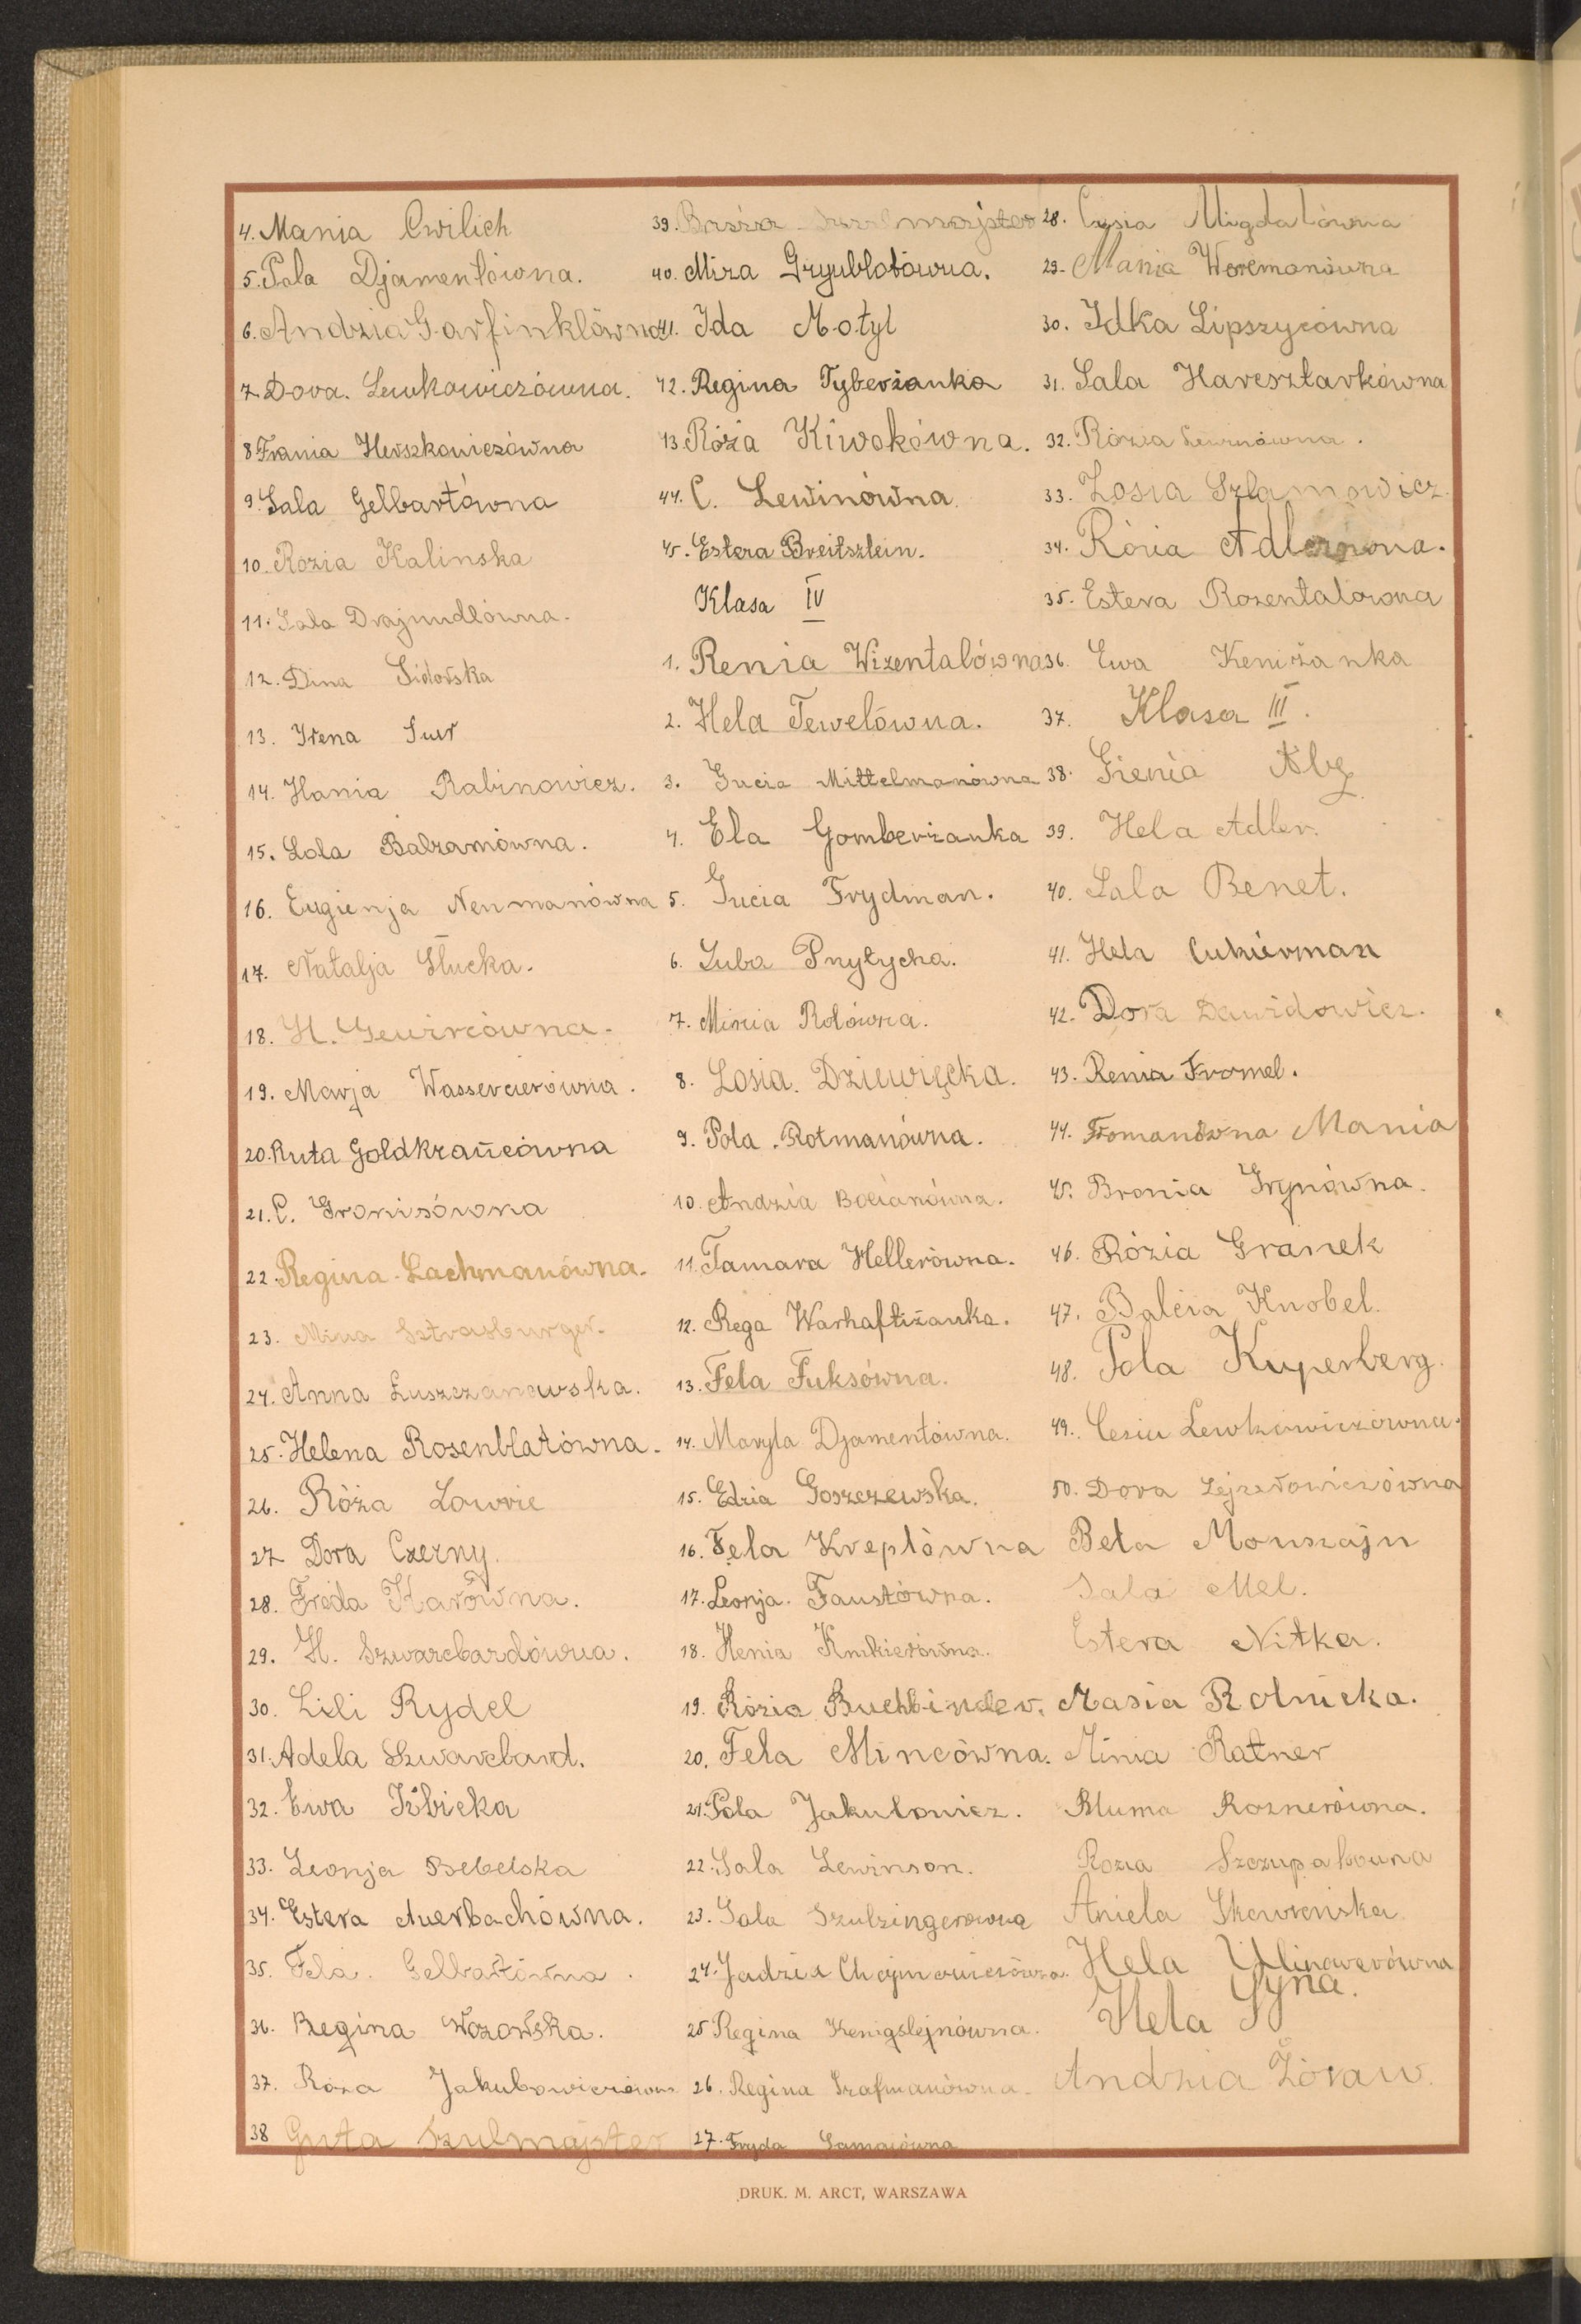 4. Mania Cwilich
5. Pola Djamentówna.
6. Andzia Garfinklówna
7. Dora. Lewkowiczówna.
8 Frania Herszkowiczówna
9. Sala Gelbartówna
10. Rózia Kalinska
11. Sala Drajnudlówna.
12. Dina Sidorska
13. Irena Surr
14. Hania Rabinowicz.
15. Lola Balsamówna.
16. Eugienja Neumanówna
17. Natalja Słucka.
18. H. Gewircówna.
19. Marja Wassercierówna.
20. Ruta Goldkrańcówna
21. C. Gronisówna
22. Regina Lachmanówna.
23. Mina Sztrasburger.
24. Anna Łuszczanowska.
25. Helena Rosenblatówna.
26. Róża Lowrie
27 Dora Czerny.
28. Freda Karówna.
29. H. Szwarcbardówna.
30. Lili Rydel
31. Adela Szwarcbard.
32. Ewa Izbicka
33. Leonja Bebelska
34. Estera Auerbachówna.
35. Fela. Gelbartówna.
36. Regina Wozowska.
37. Roza Jakubowiczówna
38 Guta Szulmajster
39. Szulmajster
40. Mira Gryublatówna.
41. Ida Motyl
42. Regina Tyberżanka
43. Róża Kiwokówna.
44. C. Lewinówna.
45. Estera Breitsztein.
Klasa IV
1. Renia Wizentalówna
2. Hela Tewelówna.
3. Gucia Mittelmanówna
4. Ela Gomberżanka
5. Gucia Frydman.
6. Luba Przytycha.
7. Minia Rolówna.
8. Zosia. Dziewięcka.
9. Pola Rotmanówna.
10. Andzia Bocianówna.
11. Tamara Hellerówna.
12. Rega Warhaftiżanka.
13. Fela Fuksówna.
14. Maryla Djamentówna.
15. Edzia Goszczewska.
16. Fela Kreplówna
17. Leonja. Faustówna.
18. Henia Knikierówna.
19. Rózia Buchbinder.
20. Fela Mincówna.
21. Pola Jakubowicz.
22. Sala Lewinson.
23. Sala Szulzingerowna
24. Jadzia Chajmowiczówna.
25 Regina Kenigstejnówna.
26. Regina Szafmanówna.
27. Fryda Lamaiówna
28. Cysia Migdałówna
29. Mania Woremanówna
30. Idka Lipszycówna
31. Sala Haresztarkówna
32. Rózia Lewinówna.
33. Zosia Szlamowicz.
34. Rózia Adlerówna.
35. Estera Rozentalowna
36. Ewa Keniżanka
37. Klasa III.
38. Gienia Abg
39. Hela Adler.
40. Sala Benet.
41. Hela Cukierman
42. Dora Dawidowicz.
43. Renia Fromel.
44. Fromanówna Mania
45. Bronia Grynówna.
46. Rózia Granek
47. Balcia Knobel.
48. Pola Kuperberg.
49. Cesia Lewkowiczówna.
50. Dora Lejzerowiczówna
Beta Monszajn
Sala Mel.
Estera Nitka.
Masia Rolnicka.
Minia Ratner
Bluma Roznerówna.
Rozia Szczupakowna
Aniela Skowrońska
Hela Ulinowerówna
Hela Syna.
Andzia Żóraw.
DRUK. M. ARCT, WARSZAWA